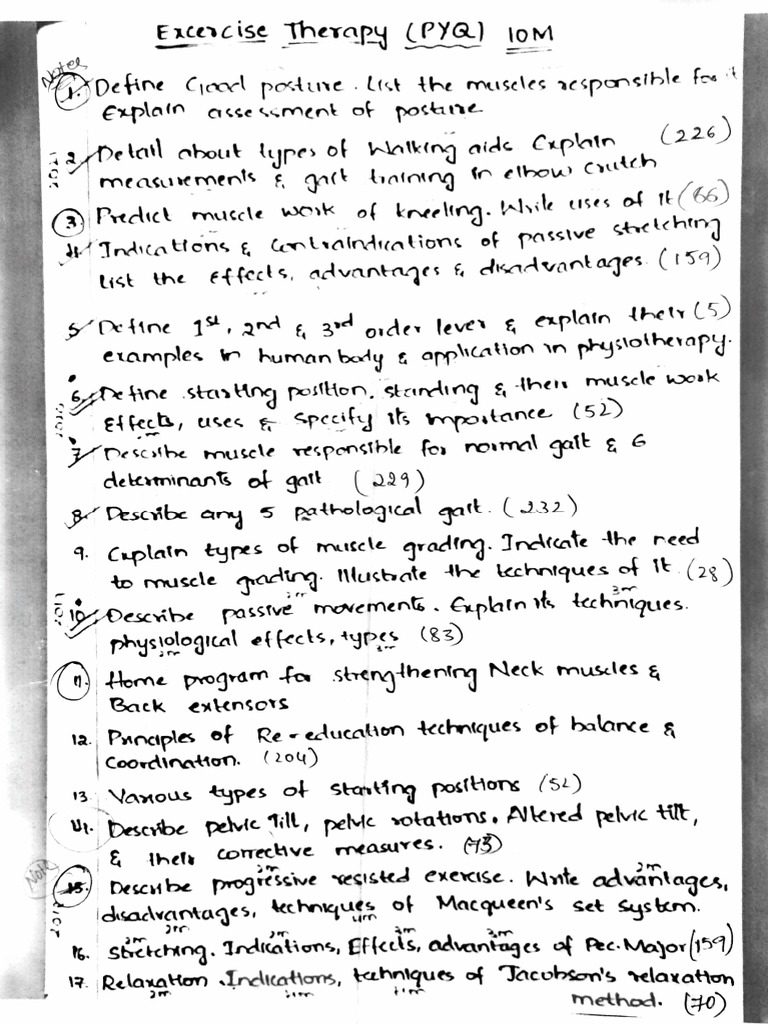 Excercise Therapy (PYQ) 10M
Notes
1. Define Good posture. List the muscles responsible for it
Explain assessment of posture
2. Detail about types of Walking aids Explain (226)
measurements & gait training in elbow crutch
3. Predict muscle work of kneeling. Write uses of it (66)
4. Indications & Contraindications of passive stretching
List the effects, advantages & disadvantages. (159)
5. Define 1st, 2nd & 3rd order lever & explain their (5)
examples in human body & application in physiotherapy.
6. Define starting position, standing & their muscle work
Effects, uses & specify its importance (52)
7. Describe muscle responsible for normal gait & 6
determinants of gait (229)
8. Describe any 5 pathological gait. (232)
9. Explain types of muscle grading. Indicate the need
to muscle grading. Illustrate the techniques of it. (28)
10. Describe passive movements. Explain its techniques.
physiological effects, types (83)
11. Home program for strengthening Neck muscles &
Back extensors
12. Principles of Re-education techniques of balance &
Coordination. (204)
13. Various types of starting positions (52)
14. Describe pelvic Tilt, pelvic rotations. Altered pelvic tilt,
& their corrective measures. (73)
Note
15. Describe progressive resisted exercise. Write advantages,
disadvantages, techniques of Macqueen's set system.
16. Stretching. Indications, Effects, advantages of Pec. Major (159)
17. Relaxation. Indications, techniques of Jacobson's relaxation
method. (70)